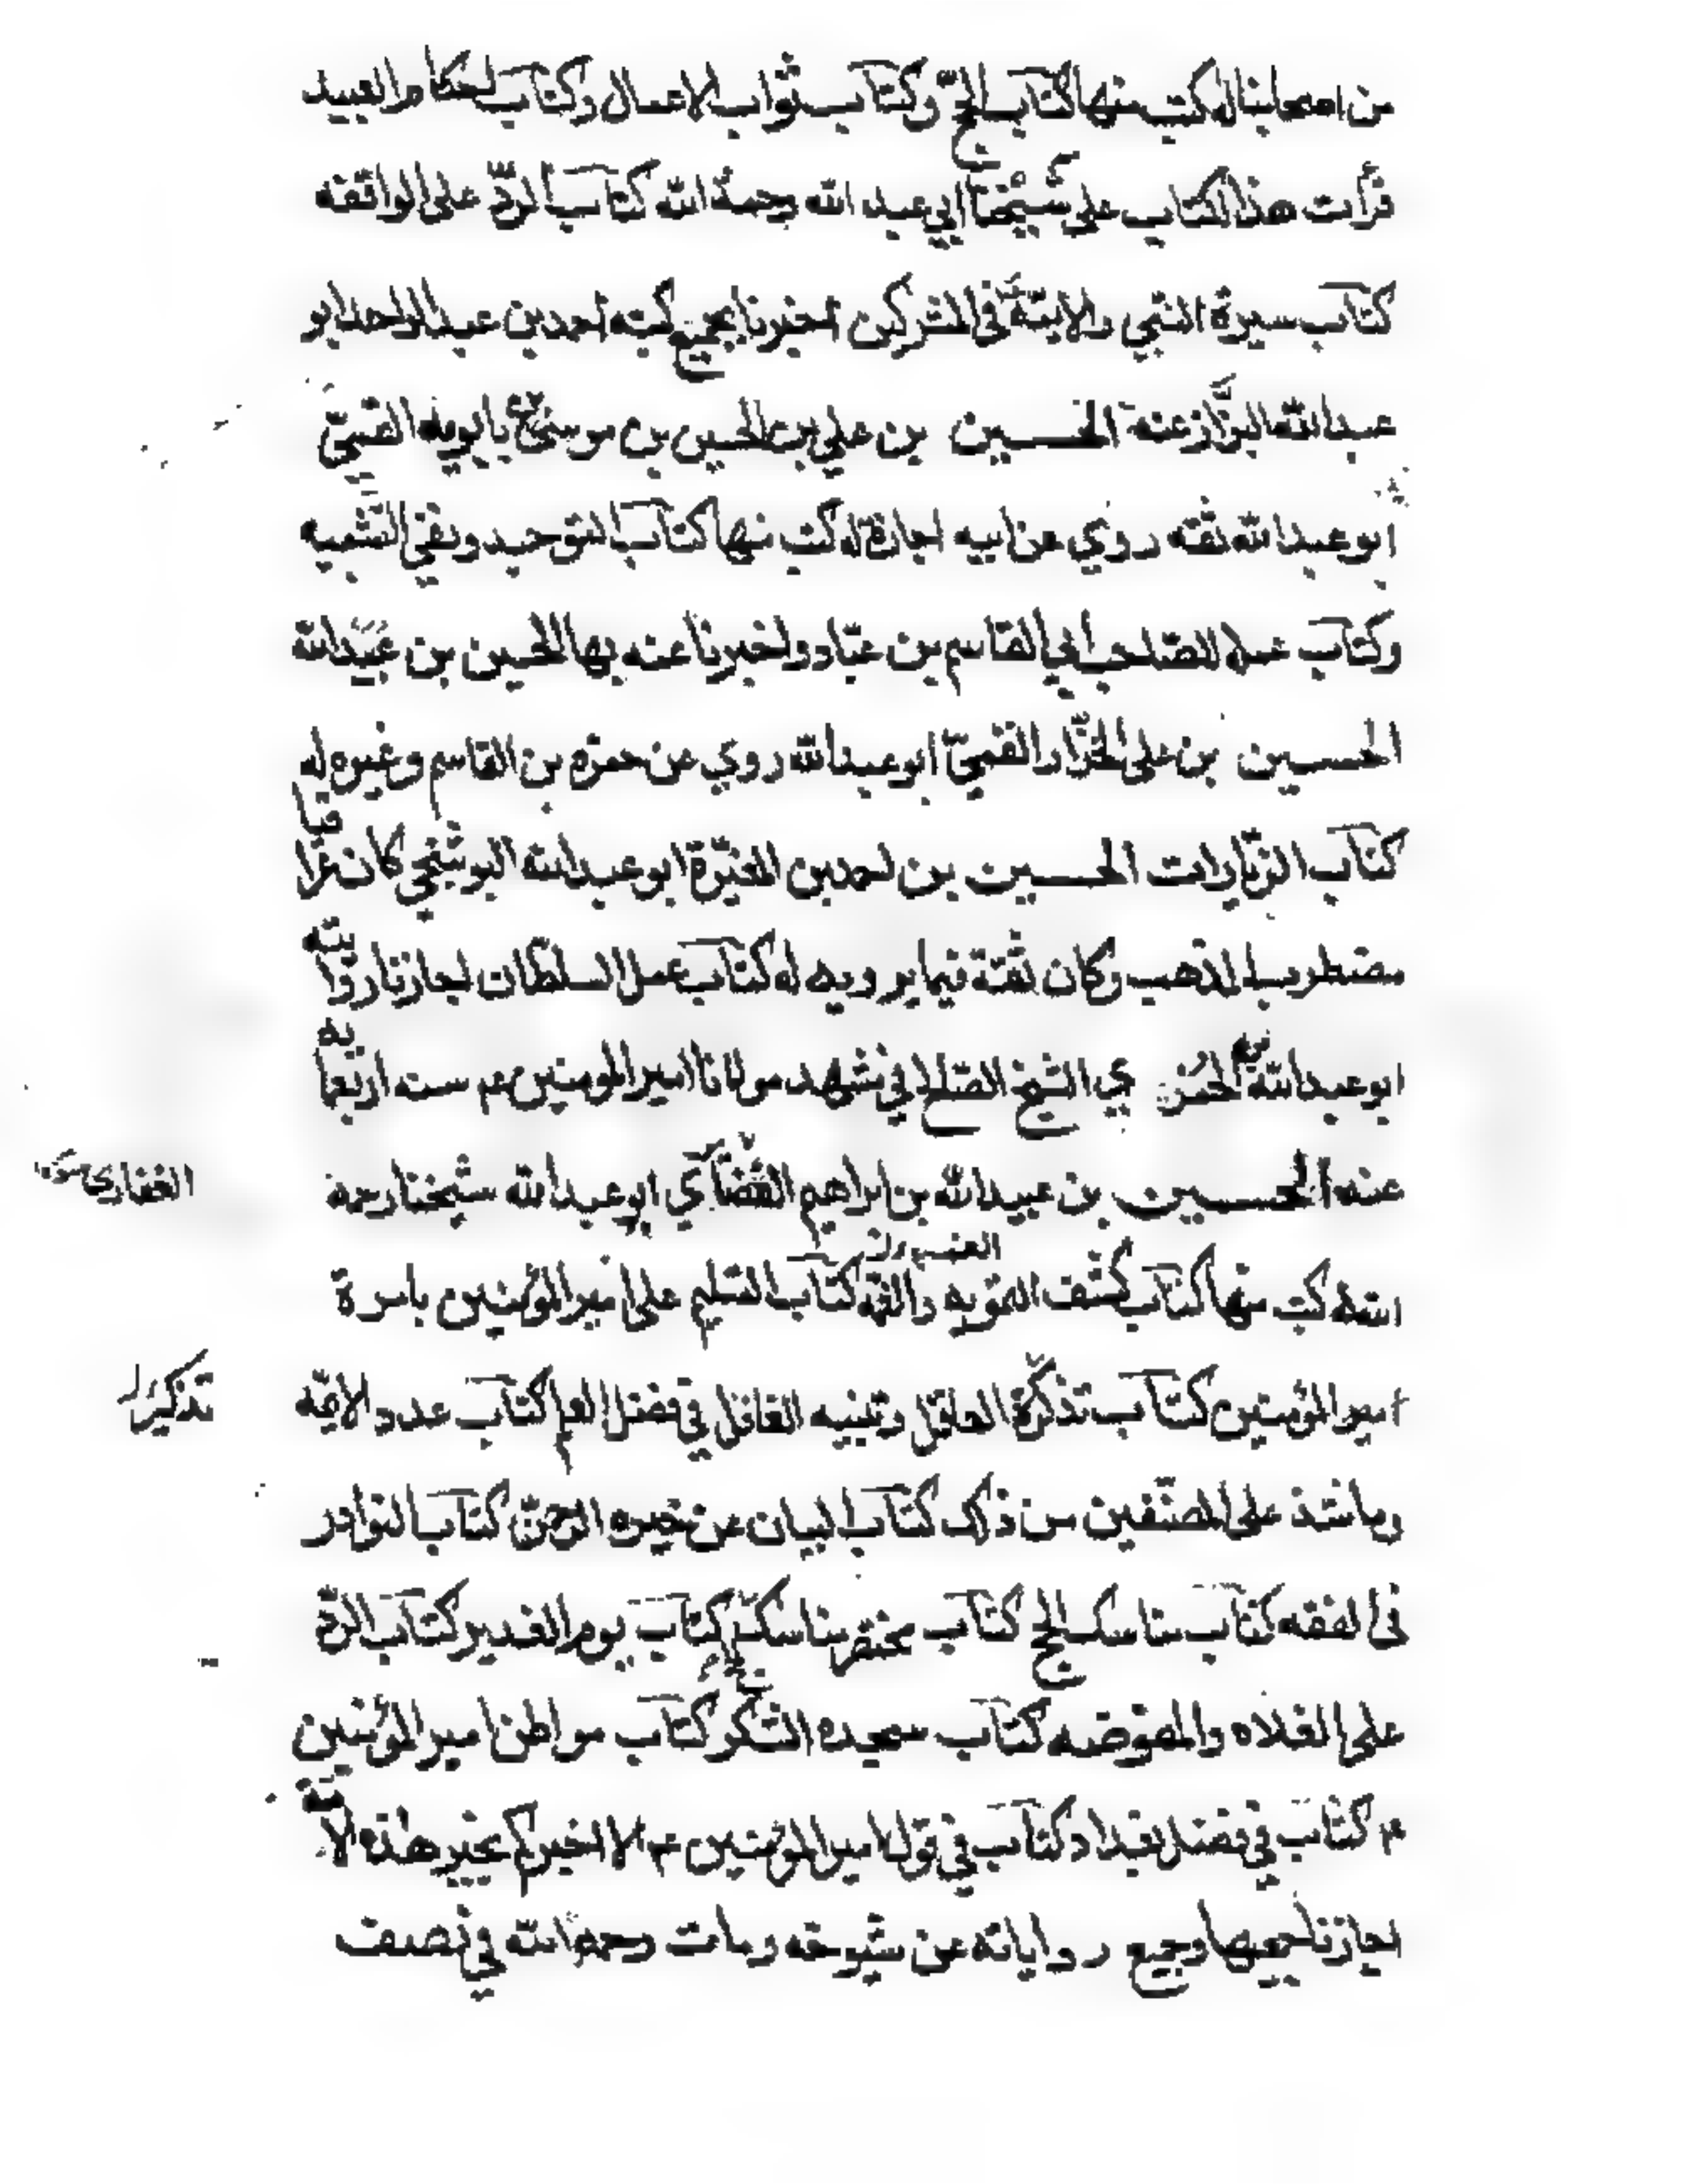 من اصحابنا له كتب منها كتاب الحج وكتاب ثواب الاعمال وكتاب احكام العبيد
قرأت هذا الكتاب على شيخنا ابي عبد الله رحمة الله كتاب الردّ على الواقفه
كتاب سيرة النبي والائمّة في المشركين اخبرنا بجميع كتبه احمد بن عبد الواحد ابو
عبد الله البزّاز عنه الحسين بن علي بن الحسين بن موسى بن بابويه القميّ
ابو عبد الله ثقه روي عن ابيه اجازة له كتب منها كتاب التوحيد ونفي التشبيه
وكتاب عمله للصاحب ابي القاسم بن عبّاد واخبرنا عنه بها الحسين بن عبيد الله
الحسين بن علي الخزّاز القميّ ابو عبد الله روي عن حمزه بن القاسم وغيره له
كتاب الزيارات الحسين بن احمد بن المغيرة ابو عبد الله البوشنجي كان عراقيا
مضطرب المذهب وكان ثقة فيما يرويه له كتاب عمل السلطان اجازنا روايته
ابو عبد الله بن الخمري الشيخ الصالح في مشهد مولانا امير المومنين ع م ست اربعمايه
عنه الحسين بن عبيد الله بن ابراهيم ابو عبد الله شيخنا رحمه
الغضاري
الله له كتب منها كتاب كشف التمويه والغمّه كتاب التسليم على امير المؤمنين بامرة
امير المؤمنين كتاب تذكرة العاقل وتنبيه الغافل في فضل العلم كتاب عدد الائمّه
تذكير
وما شذ على المصنّفين من ذلك كتاب البيان عن حبوه الرحمن كتاب النوادر
في الفقه كتاب مناسك الحج كتاب مختصر مناسك الحج كتاب يوم الغدير كتاب الردّ
على الغلاه والمفوّضه كتاب سجده الشكر كتاب مواطن امير المؤمنين
ع م كتاب في فضل بغداد كتاب في قول امير المؤمنين ع م الا اخبركم بخير هذه الامّة
اجازنا جميعها وجميع رواياته عن شيوخه ومات رحمه الله في نصف